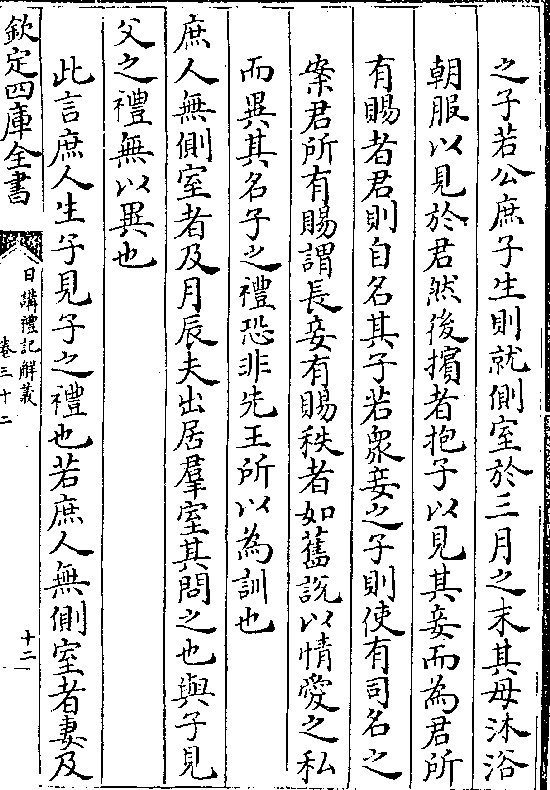 之子若公庶子生則就側室於三月之末其母沐浴
朝服以見於君然後擯者抱子以見其妾而為君所
有賜者君則自名其子若衆妾之子則使有司名之
案君所有賜謂長妾有賜秩者如舊說以情愛之私
而異其名子之禮恐非先王所以為訓也
庶人無側室者及月辰夫出居羣室其問之也與子見
父之禮無以異也
此言庶人生子見子之禮也若庶人無側室者妻及
欽定四庫全書
日講禮記解義
卷三十二
十二